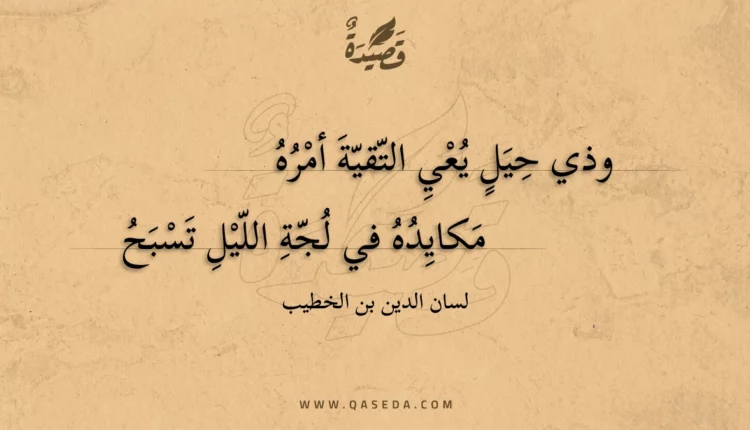 قَصِيْدَةٌ
وذي حِيَلٍ يُعْيِ التّقيّةَ أمْرُهُ
مَكايِدُهُ في لُجّةِ اللّيْلِ تَسْبَحُ
لسان الدين بن الخطيب
WWW.QASEDA.COM